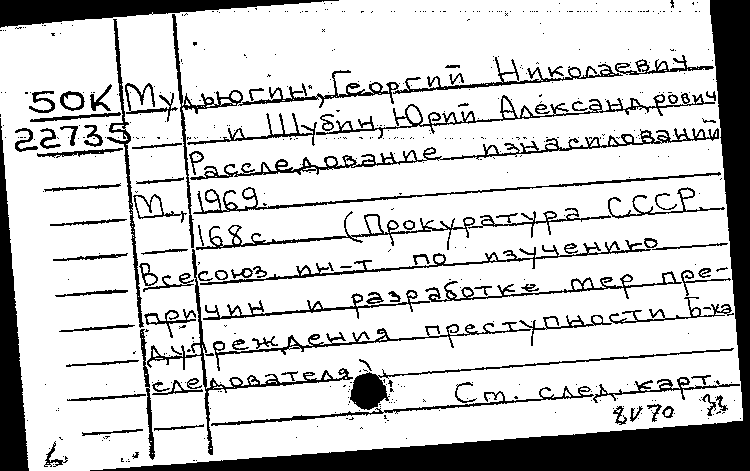 50К Мудьюгин, Георгий Николаевич
22735 и Шубин, Юрий Александрович
Расследование изнасилований
М., 1969.
168 с. (Прокуратура СССР.
Всесоюз. ин-т по изучению
причин и разработке мер пре-
дупреждения преступности. Б-ка
следователя)
Ст. след. карт.
8V70